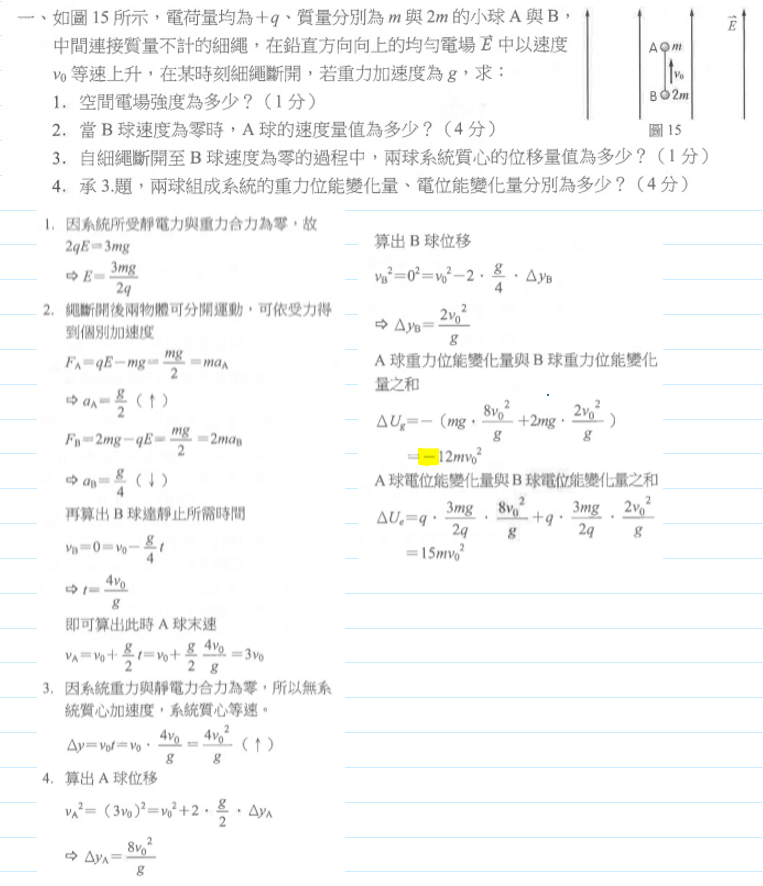 一、如圖 15 所示，電荷量均為＋q、質量分別為 m 與 2m 的小球 A 與 B，
中間連接質量不計的細繩，在鉛直方向向上的均勻電場 E⃗ 中以速度
v₀ 等速上升，在某時刻細繩斷開，若重力加速度為 g，求：
1. 空間電場強度為多少？（1 分）
2. 當 B 球速度為零時，A 球的速度量值為多少？（4 分）
3. 自細繩斷開至 B 球速度為零的過程中，兩球系統質心的位移量值為多少？（1 分）
4. 承 3.題，兩球組成系統的重力位能變化量、電位能變化量分別為多少？（4 分）
E⃗
A m
v₀
B 2m
圖 15
1. 因系統所受靜電力與重力合力為零，故
2qE＝3mg
⇨ E＝3mg/2q
2. 繩斷開後兩物體可分開運動，可依受力得
到個別加速度
F_A＝qE－mg＝mg/2＝ma_A
⇨ a_A＝g/2（↑）
F_B＝2mg－qE＝mg/2＝2ma_B
⇨ a_B＝g/4（↓）
再算出 B 球達靜止所需時間
v_B＝0＝v₀－g/4 t
⇨ t＝4v₀/g
即可算出此時 A 球末速
v_A＝v₀＋g/2 t＝v₀＋g/2 4v₀/g＝3v₀
3. 因系統重力與靜電力合力為零，所以無系
統質心加速度，系統質心等速。
Δy＝v₀t＝v₀．4v₀/g＝4v₀²/g（↑）
4. 算出 A 球位移
v_A²＝（3v₀）²＝v₀²＋2．g/2．Δy_A
⇨ Δy_A＝8v₀²/g
算出 B 球位移
v_B²＝0²＝v₀²－2．g/4．Δy_B
⇨ Δy_B＝2v₀²/g
A 球重力位能變化量與 B 球重力位能變化
量之和
ΔU_g＝－（mg．8v₀²/g＋2mg．2v₀²/g）
＝－12mv₀²
A 球電位能變化量與 B 球電位能變化量之和
ΔU_e＝q．3mg/2q．8v₀²/g＋q．3mg/2q．2v₀²/g
＝15mv₀²